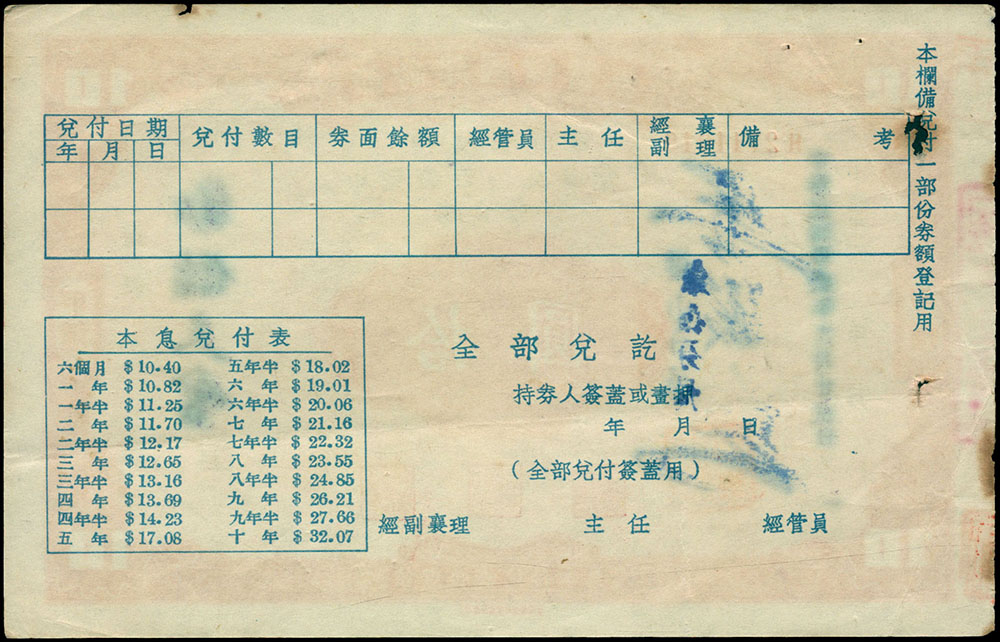 本欄備兌付一部份券額登記用
兌付日期 兌付數目 券面餘額 經管員 主任 經副襄理 備考
年 月 日
本息兌付表
六個月 $10.40 五年半 $18.02
一年 $10.82 六年 $19.01
一年半 $11.25 六年半 $20.06
二年 $11.70 七年 $21.16
二年半 $12.17 七年半 $22.32
三年 $12.65 八年 $23.55
三年半 $13.16 八年半 $24.85
四年 $13.69 九年 $26.21
四年半 $14.23 九年半 $27.66
五年 $17.08 十年 $32.07
全部兌訖
持券人簽蓋或畫押
年 月 日
(全部兌付簽蓋用)
經副襄理 主任 經管員